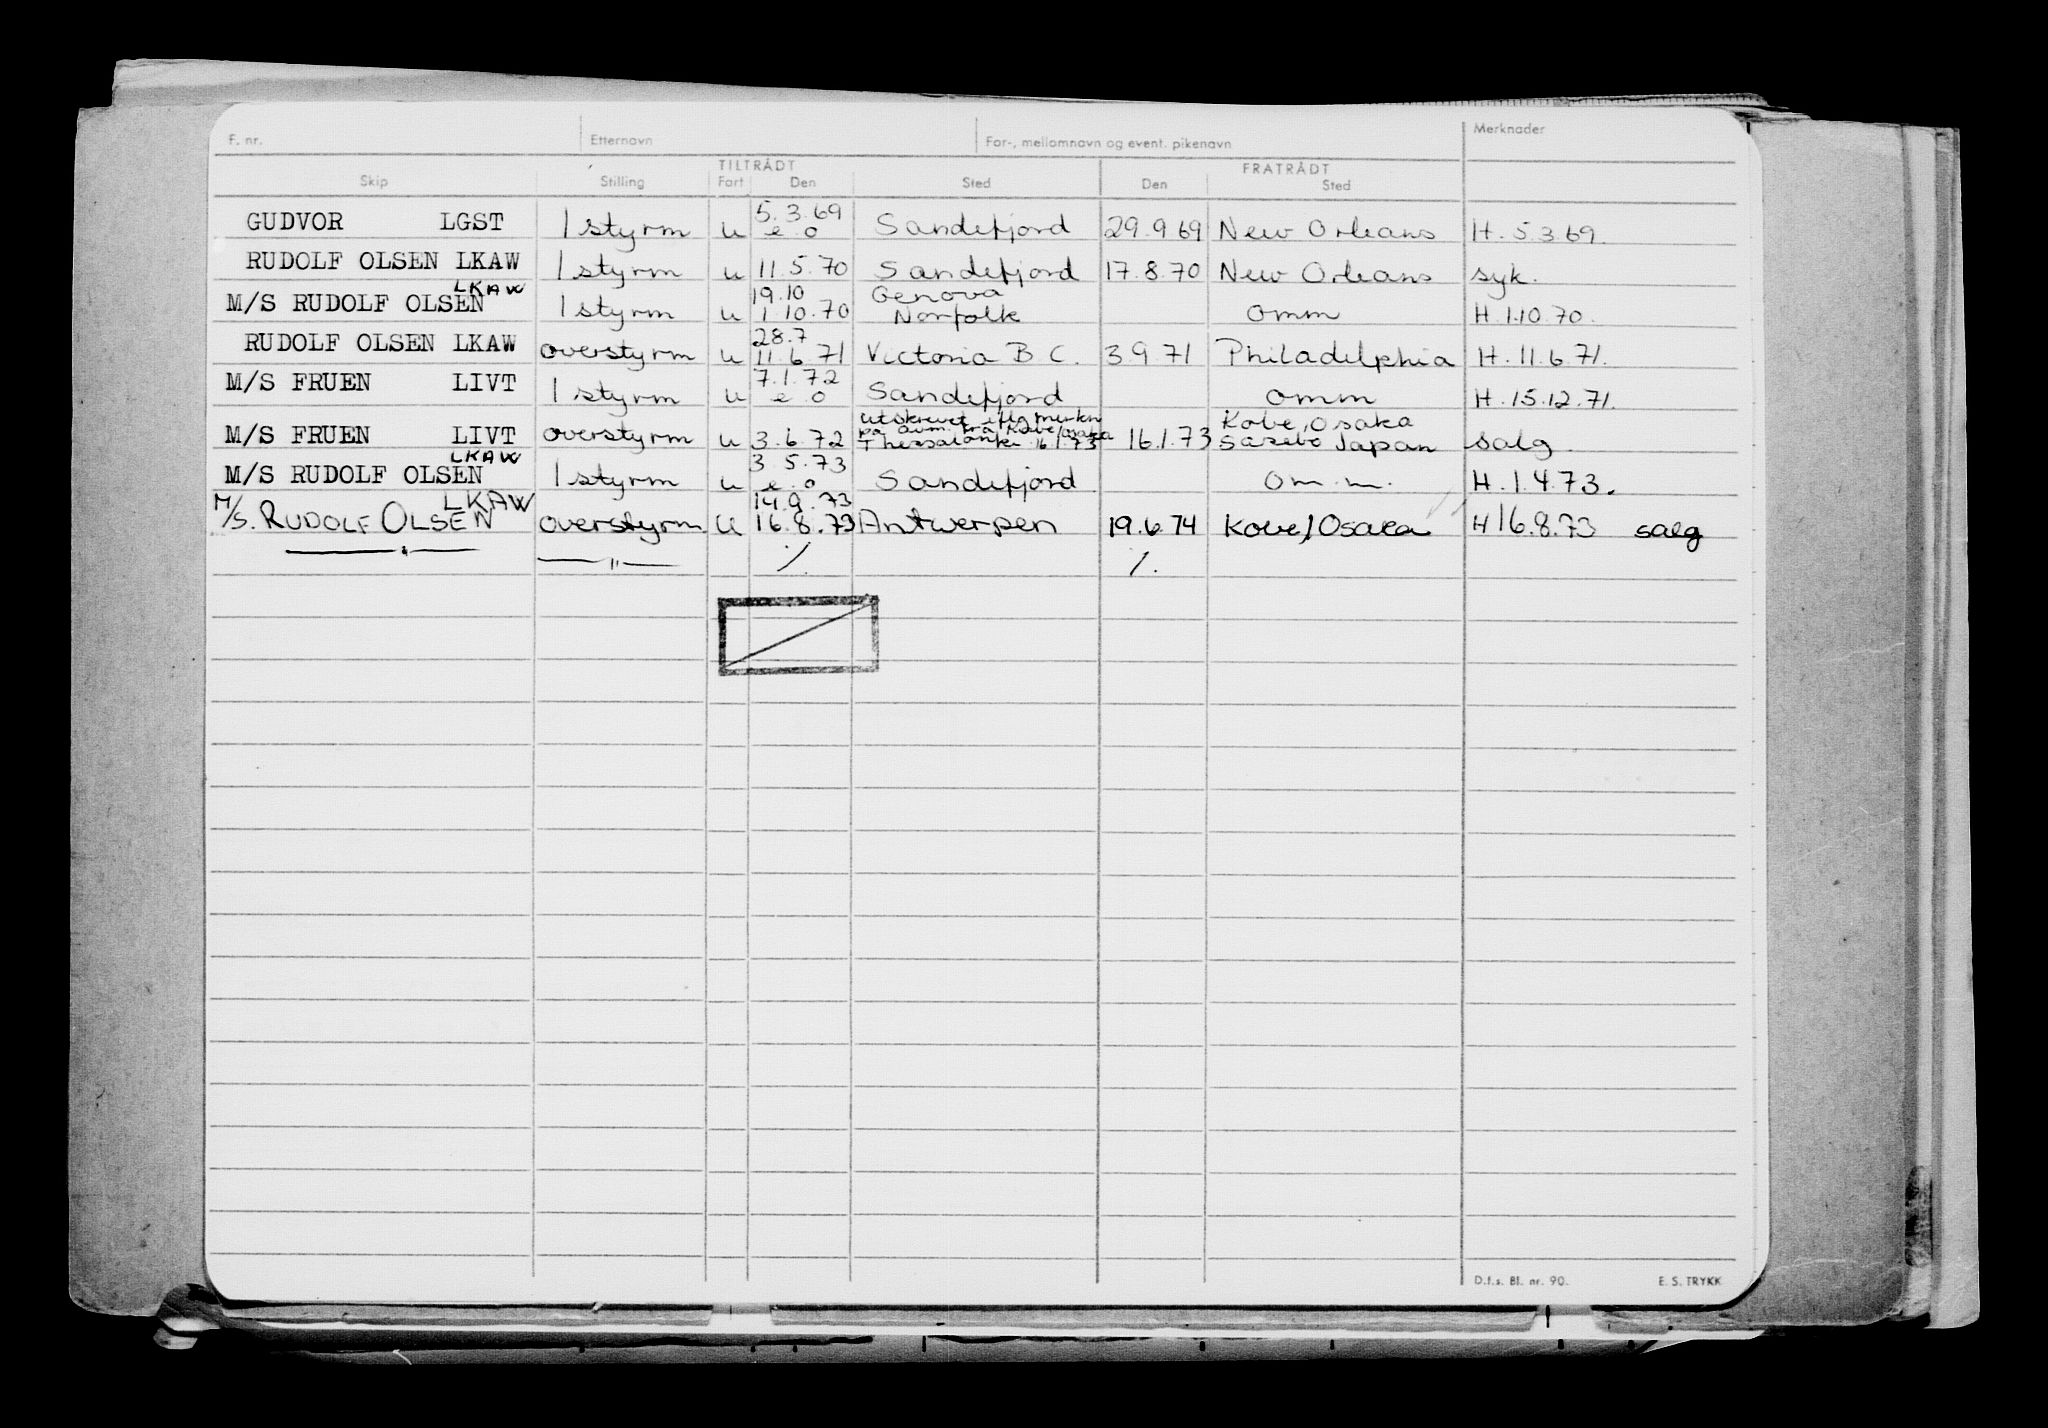 F. nr. Etternavn For-, mellomnavn og event. pikenavn Merknader
TILTRÅDT FRATRÅDT
Skip Stilling Fart Den Sted Den Sted
5.3.69
GUDVOR LGST 1 styrm u e o Sandefjord 29.9 69 New Orleans H. 5.3 69.
RUDOLF OLSEN LKAW 1 styrm u 11.5.70 Sandefjord 17.8.70 New Orleans syk.
LKAW 19.10 Genova
M/S RUDOLF OLSEN 1 styrm u 1.10.70 Norfolk omm H.1.10.70.
28.7
RUDOLF OLSEN LKAW overstyrm u 11.6.71 Victoria B C. 3 9.71 Philadelphia H. 11.6.71.
7.1.72
M/S FRUEN LIVT 1 styrm u e o Sandefjord omm H.15.12.71.
utskrevet iflg merkn Kobe, Osaka
på avm. fra Kobe/Osaka
M/S FRUEN LIVT overstyrm u 3.6.72 Thessaloniki 16.1.73 16.1.73 Sasebo Japan salg
LKAW 3.5.73
M/S RUDOLF OLSEN 1 styrm u e.o Sandefjord om.m. H.1.4.73.
LKAW 14.9.73
M/S. RUDOLF OLSEN overstyrm u 16.8.73 Antwerpen 19.6.74 Kobe/Osaka H 16.8.73 salg
— " — — " — ·/. ·/.
D.f.s. Bl. nr. 90. E. S. TRYKK